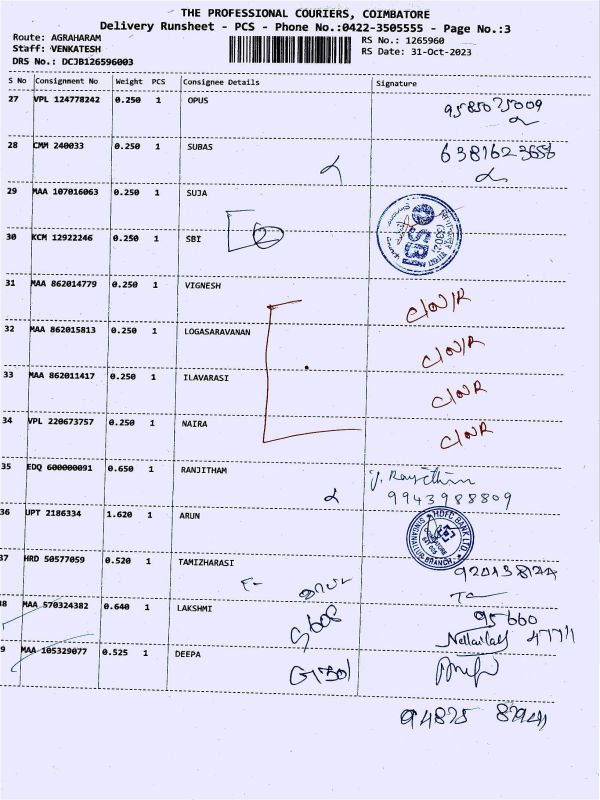 THE PROFESSIONAL COURIERS, COIMBATORE
Delivery Runsheet - PCS - Phone No.:0422-3505555 - Page No.:3
Route: AGRAHARAM
Staff: VENKATESH
DRS No.: DCJB126596003
RS No.: 1265960
RS Date: 31-Oct-2023
S No Consignment No Weight PCS Consignee Details Signature
27 VPL 124778242 0.250 1 OPUS 9585075009
28 CMM 240033 0.250 1 SUBAS
29 MAA 107016063 0.250 1 SUJA
30 KCM 12922246 0.250 1 SBI
31 MAA 862014779 0.250 1 VIGNESH C/N/R
32 MAA 862015813 0.250 1 LOGASARAVANAN C/N/R
33 MAA 862011417 0.250 1 ILAVARASI C/N/R
34 VPL 220673757 0.250 1 NAIRA C/N/R
35 EDQ 600000091 0.650 1 RANJITHAM
9943988809
36 UPT 2186334 1.620 1 ARUN
HDFC BANK LTD
BRANCH
37 HRD 50577059 0.520 1 TAMIZHARASI
38 MAA 570324382 0.640 1 LAKSHMI 95660
47711
9 MAA 105329077 0.525 1 DEEPA
94875